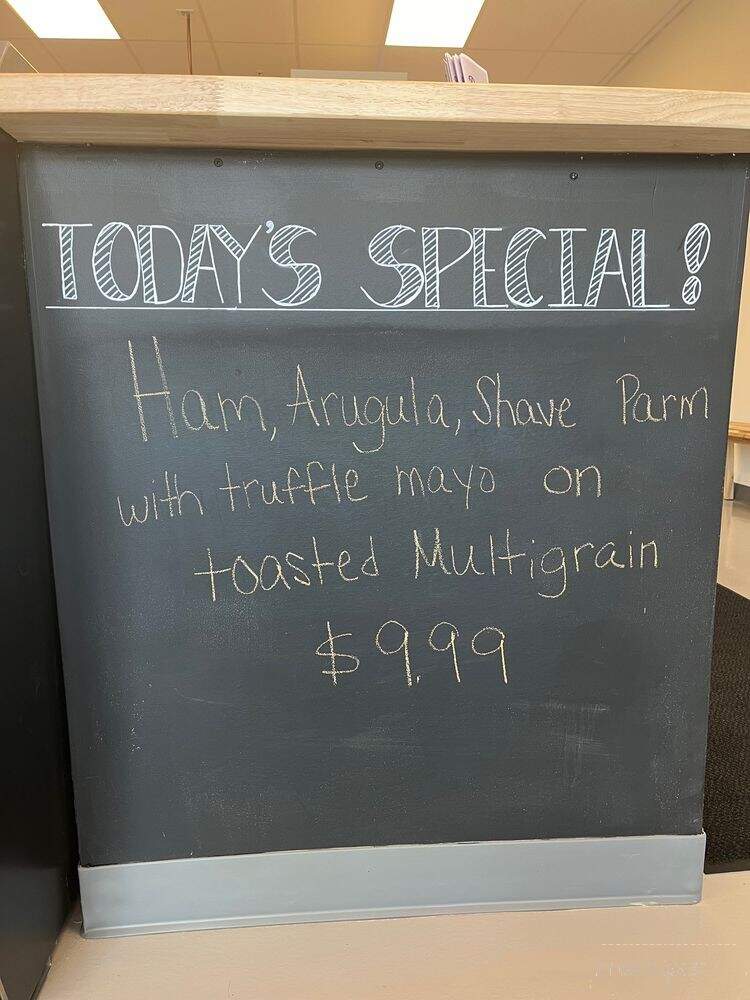 TODAY'S SPECIAL!
Ham, Arugula, Shave Parm
with truffle mayo on
toasted Multigrain
$9.99